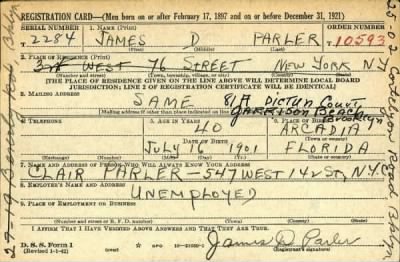 REGISTRATION CARD—(Men born on or after February 17, 1897 and on or before December 31, 1921)
SERIAL NUMBER 1. NAME (Print) ORDER NUMBER
2284 JAMES D PARLER 10593
(First) (Middle) (Last)
2. PLACE OF RESIDENCE (Print)
WEST 76 STREET NEW YORK N.Y.
(Number and street) (Town, township, village, or city) (County) (State)
[THE PLACE OF RESIDENCE GIVEN ON THE LINE ABOVE WILL DETERMINE LOCAL BOARD
JURISDICTION; LINE 2 OF REGISTRATION CERTIFICATE WILL BE IDENTICAL]
3. MAILING ADDRESS
SAME 81A Court
Brooklyn
[Mailing address if other than place indicated on line
4. TELEPHONE 5. AGE IN YEARS 6. PLACE OF BIRTH
40 ARCADIA
DATE OF BIRTH (Town or county)
JULY 16 1901 FLORIDA
(Exchange) (Number) (Mo.) (Day) (Yr.) (State or country)
7. NAME AND ADDRESS OF PERSON WHO WILL ALWAYS KNOW YOUR ADDRESS
CLAIR PARLER—547 WEST 142 ST, N.Y.
8. EMPLOYER'S NAME AND ADDRESS
UNEMPLOYED
9. PLACE OF EMPLOYMENT OR BUSINESS
(Number and street or R. F. D. number) (Town) (County) (State)
I AFFIRM THAT I HAVE VERIFIED ABOVE ANSWERS AND THAT THEY ARE TRUE.
D. S. S. Form 1
(Revised 1-1-42) (over) James D Parler
(Registrant's signature)
2502 Road Bklyn